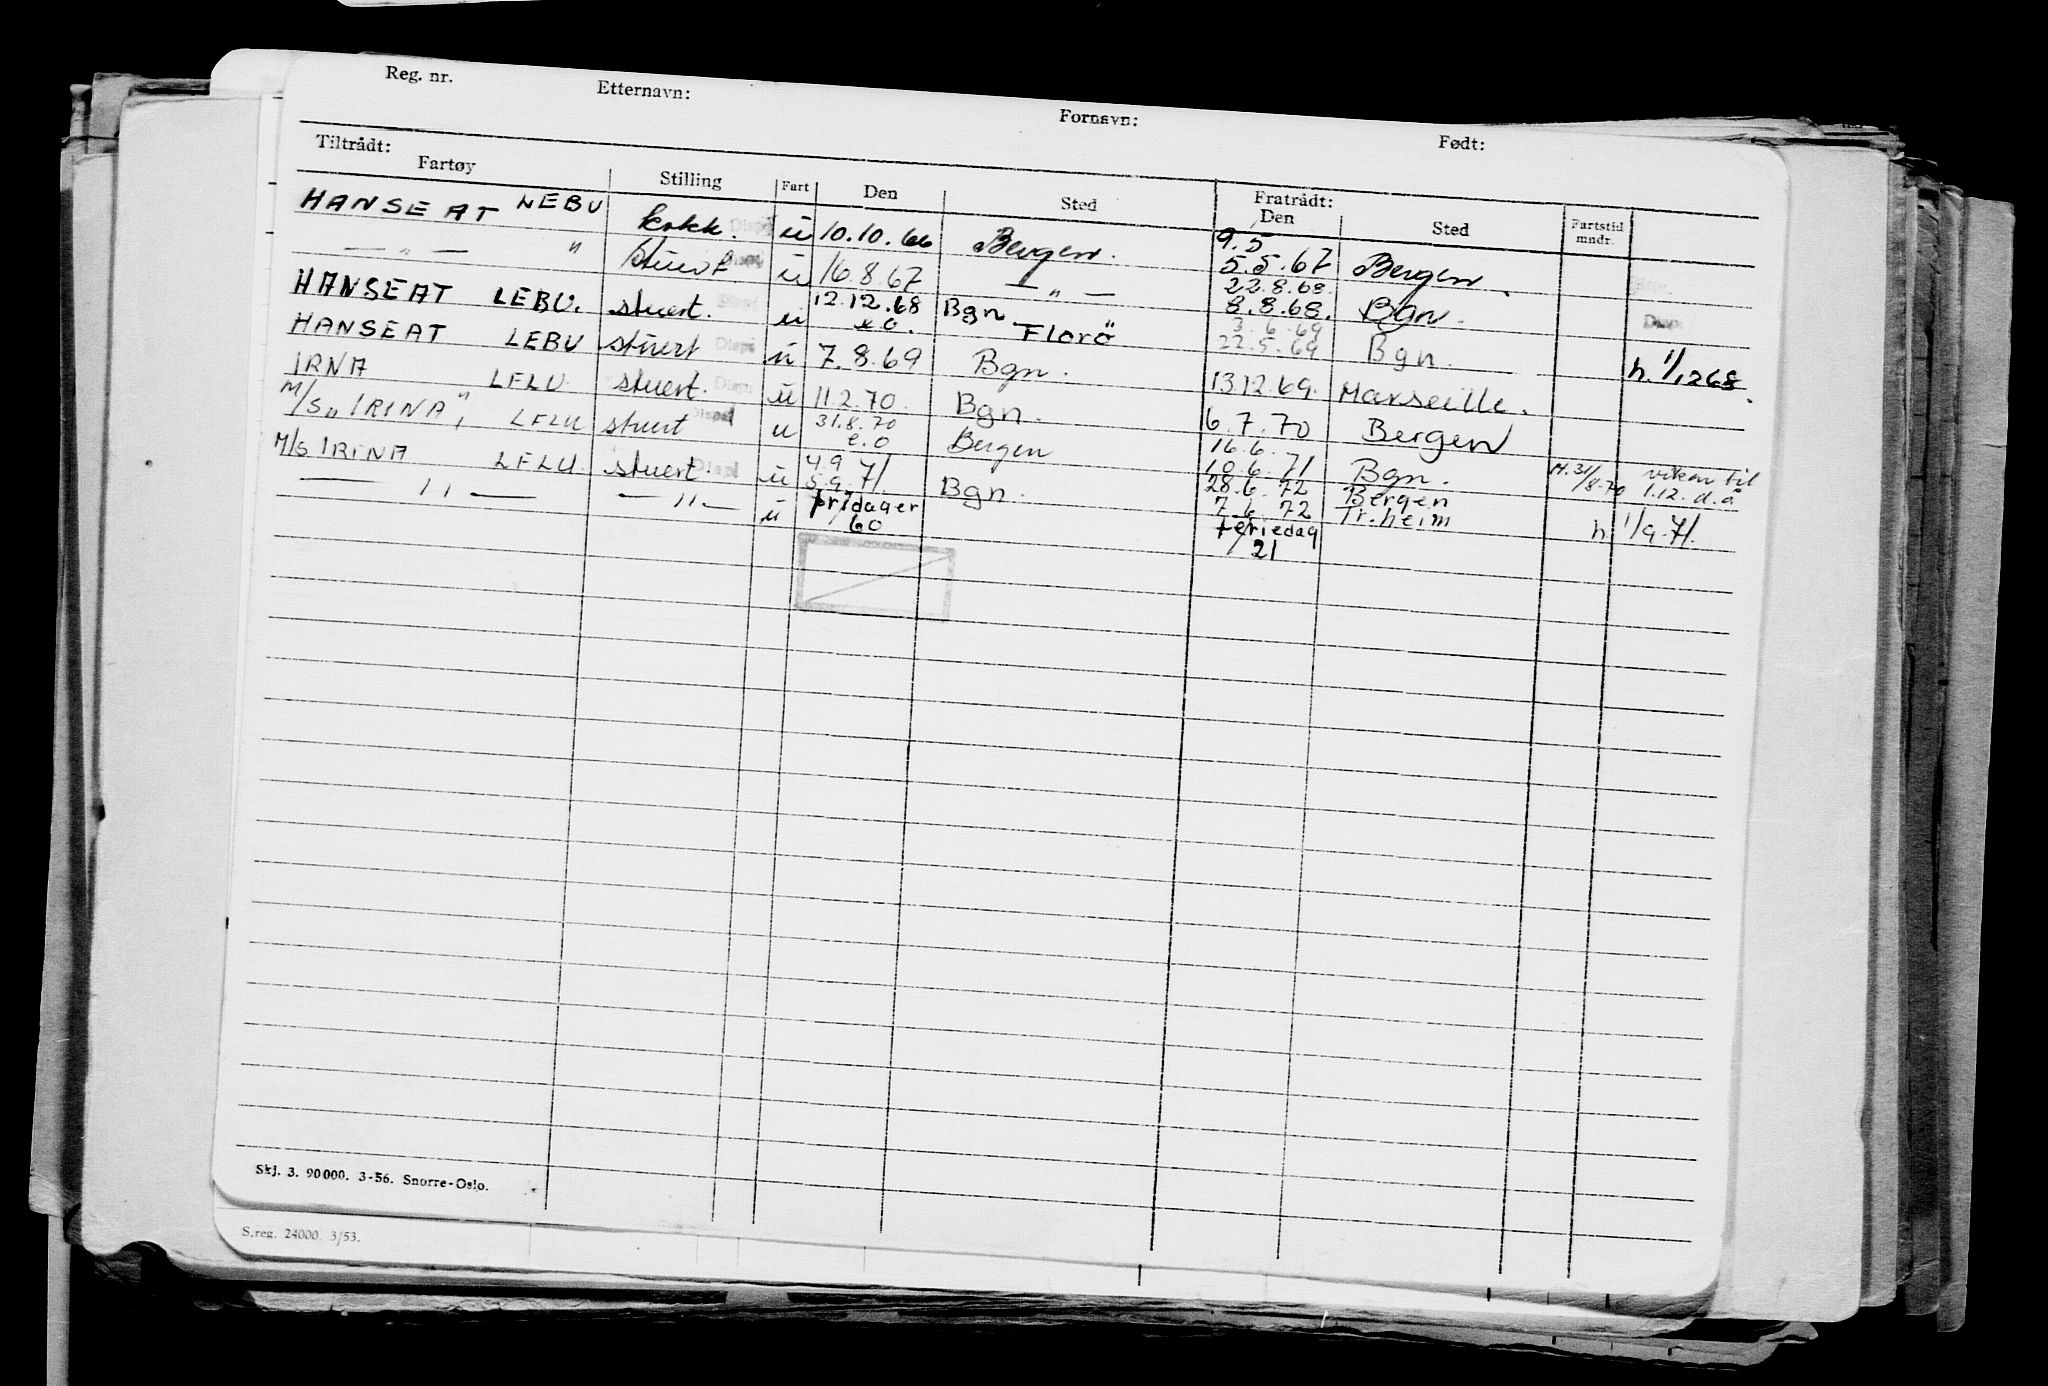 Reg. nr. Etternavn: Fornavn: Født:
Tiltrådt: Fratrådt:
Fartøy Stilling Fart Den Sted Den Sted Fartstid mndr.
HANSEAT LEBU kokk. u 10.10.66 Bergen. 9.5 5.5.67 Bergen.
— " — " Stuert u 16.8.67 — " — 22.8.68. 8.8.68. Bgn.
HANSEAT LEBU. stuert. u 12.12.68 e.o. Bgn Florö 3.6.69 22.5.69 Bgn. h. 1/1268.
HANSEAT LEBU stuert u 7.8.69 Bgn. 13.12.69. Marseille.
IRNA LFLU. stuert. u 11.2.70. Bgn. 6.7.70 Bergen
M/S "IRINA", LFLU stuert u 31.8.70 e.o Bergen 16.6. 10.6.71 Bgn. H. 31/8.70 vikar til 1.12. d.å
M/S IRINA LFLU. stuert. u 4.9 5.9.71. Bgn. 28.6.72 7.6.72 Bergen Tr.heim h. 1/9.71.
— " — — " — u fridager /60 feriedag /21
Skj. 3. 90000. 3-56. Snorre-Oslo.
S.reg. 24000. 3/53.